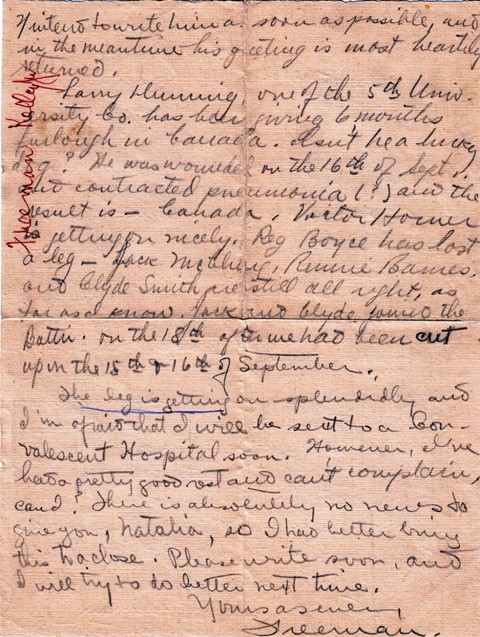 I intend to write him as soon as possible, and
in the meantime his greeting is most heartily
returned.
Larry Dunning, one of the 5th Univ-
ersity Co. has been given 6 months
furlough in Canada. Isn't he a lucky
dog? He was wounded on the 16th of Sept.,
but contracted pneumonia (!) and the
result is – Canada. Victor Horner
is getting on nicely. Reg Boyce has lost
a leg – Jack Rennie Barnes,
and Clyde Smith are still all right, as
far as I know. Jack and Clyde joined the
Battn. on the 18th after we had been cut
up on the 15th & 16th of September.
The leg is getting on splendidly and
I'm afraid that I will be sent to a Con-
valescent Hospital soon. However, I've
had a pretty good rest and can't complain,
can I? There is absolutely no news to
give you, Natalia, so I had better bring
this to a close. Please write soon, and
I will try to do better next time.
Yours as ever,
Freeman.
Freeman Kelley